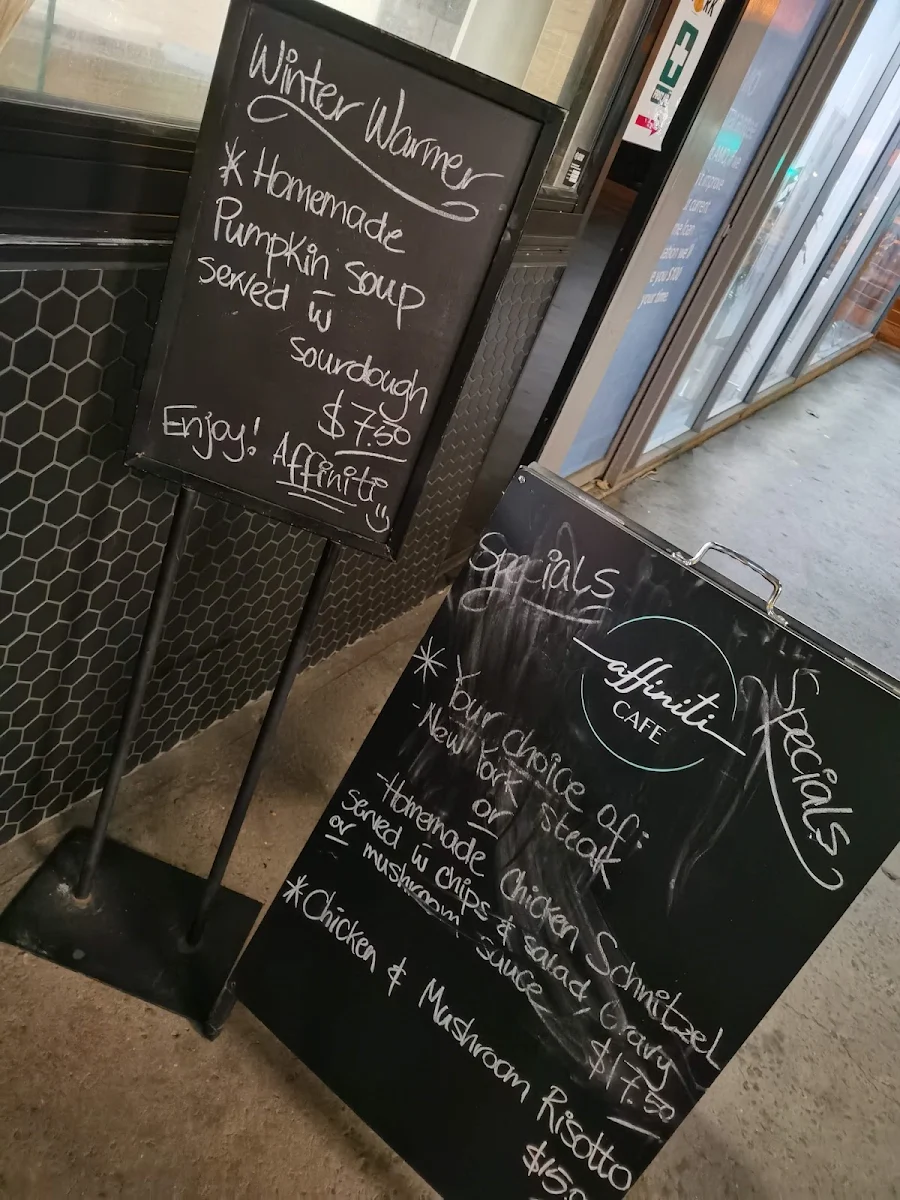 Winter Warmer
* Homemade
Pumpkin soup
served w̄
sourdough
$7.50
Enjoy! Affiniti
Specials
affiniti
CAFE
Specials
* Your choice of:
- New York steak
or
- Homemade Chicken Schnitzel
served w̄ chips & salad, Gravy
or mushroom sauce
$17.50
* Chicken & Mushroom Risotto
$15.0
improve
current
you stay
your time.